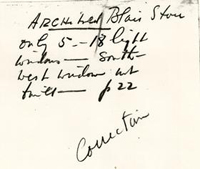 ARCHIVES Blair Stou
only 5 - 18 light
windows — south-
west window not
twelve — p 22
Correction